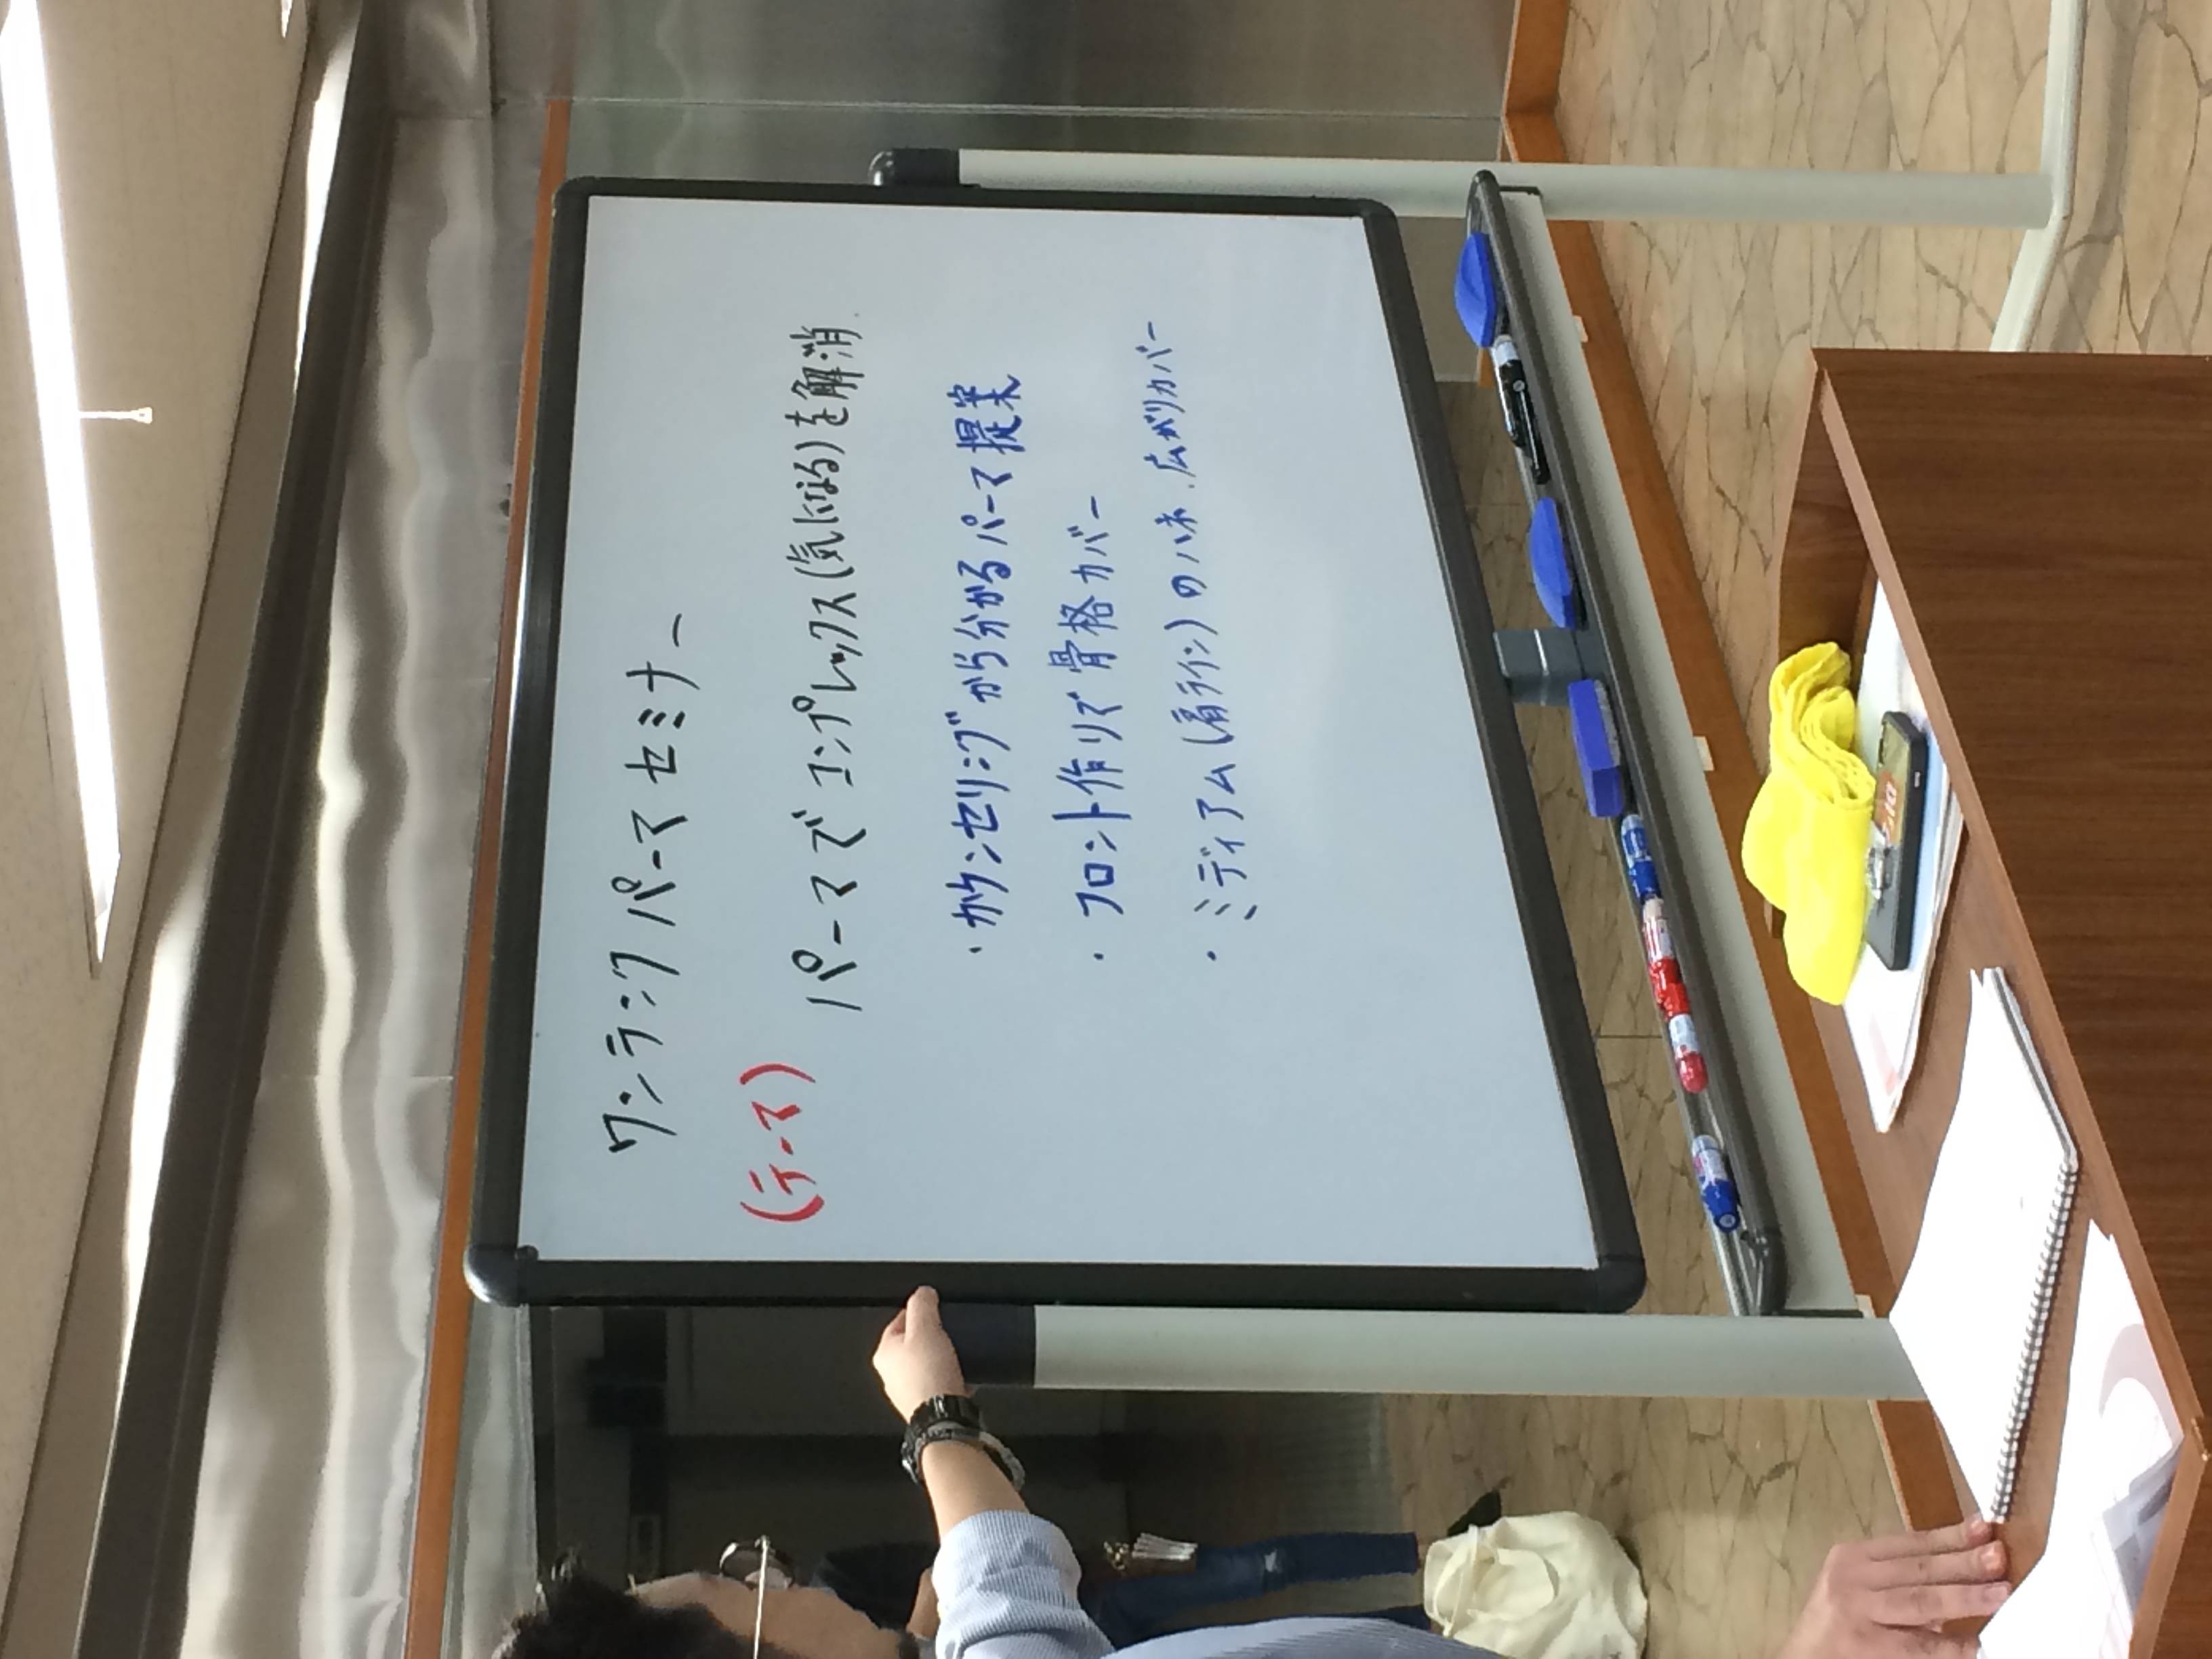 ワンランクパーマセミナー
(テーマ)
パーマでコンプレックス(気になる)を解消
・カウンセリングから分かるパーマ提案
・フロント作りで骨格カバー
・ミディアム(肩ライン)のハネ、広がりカバー